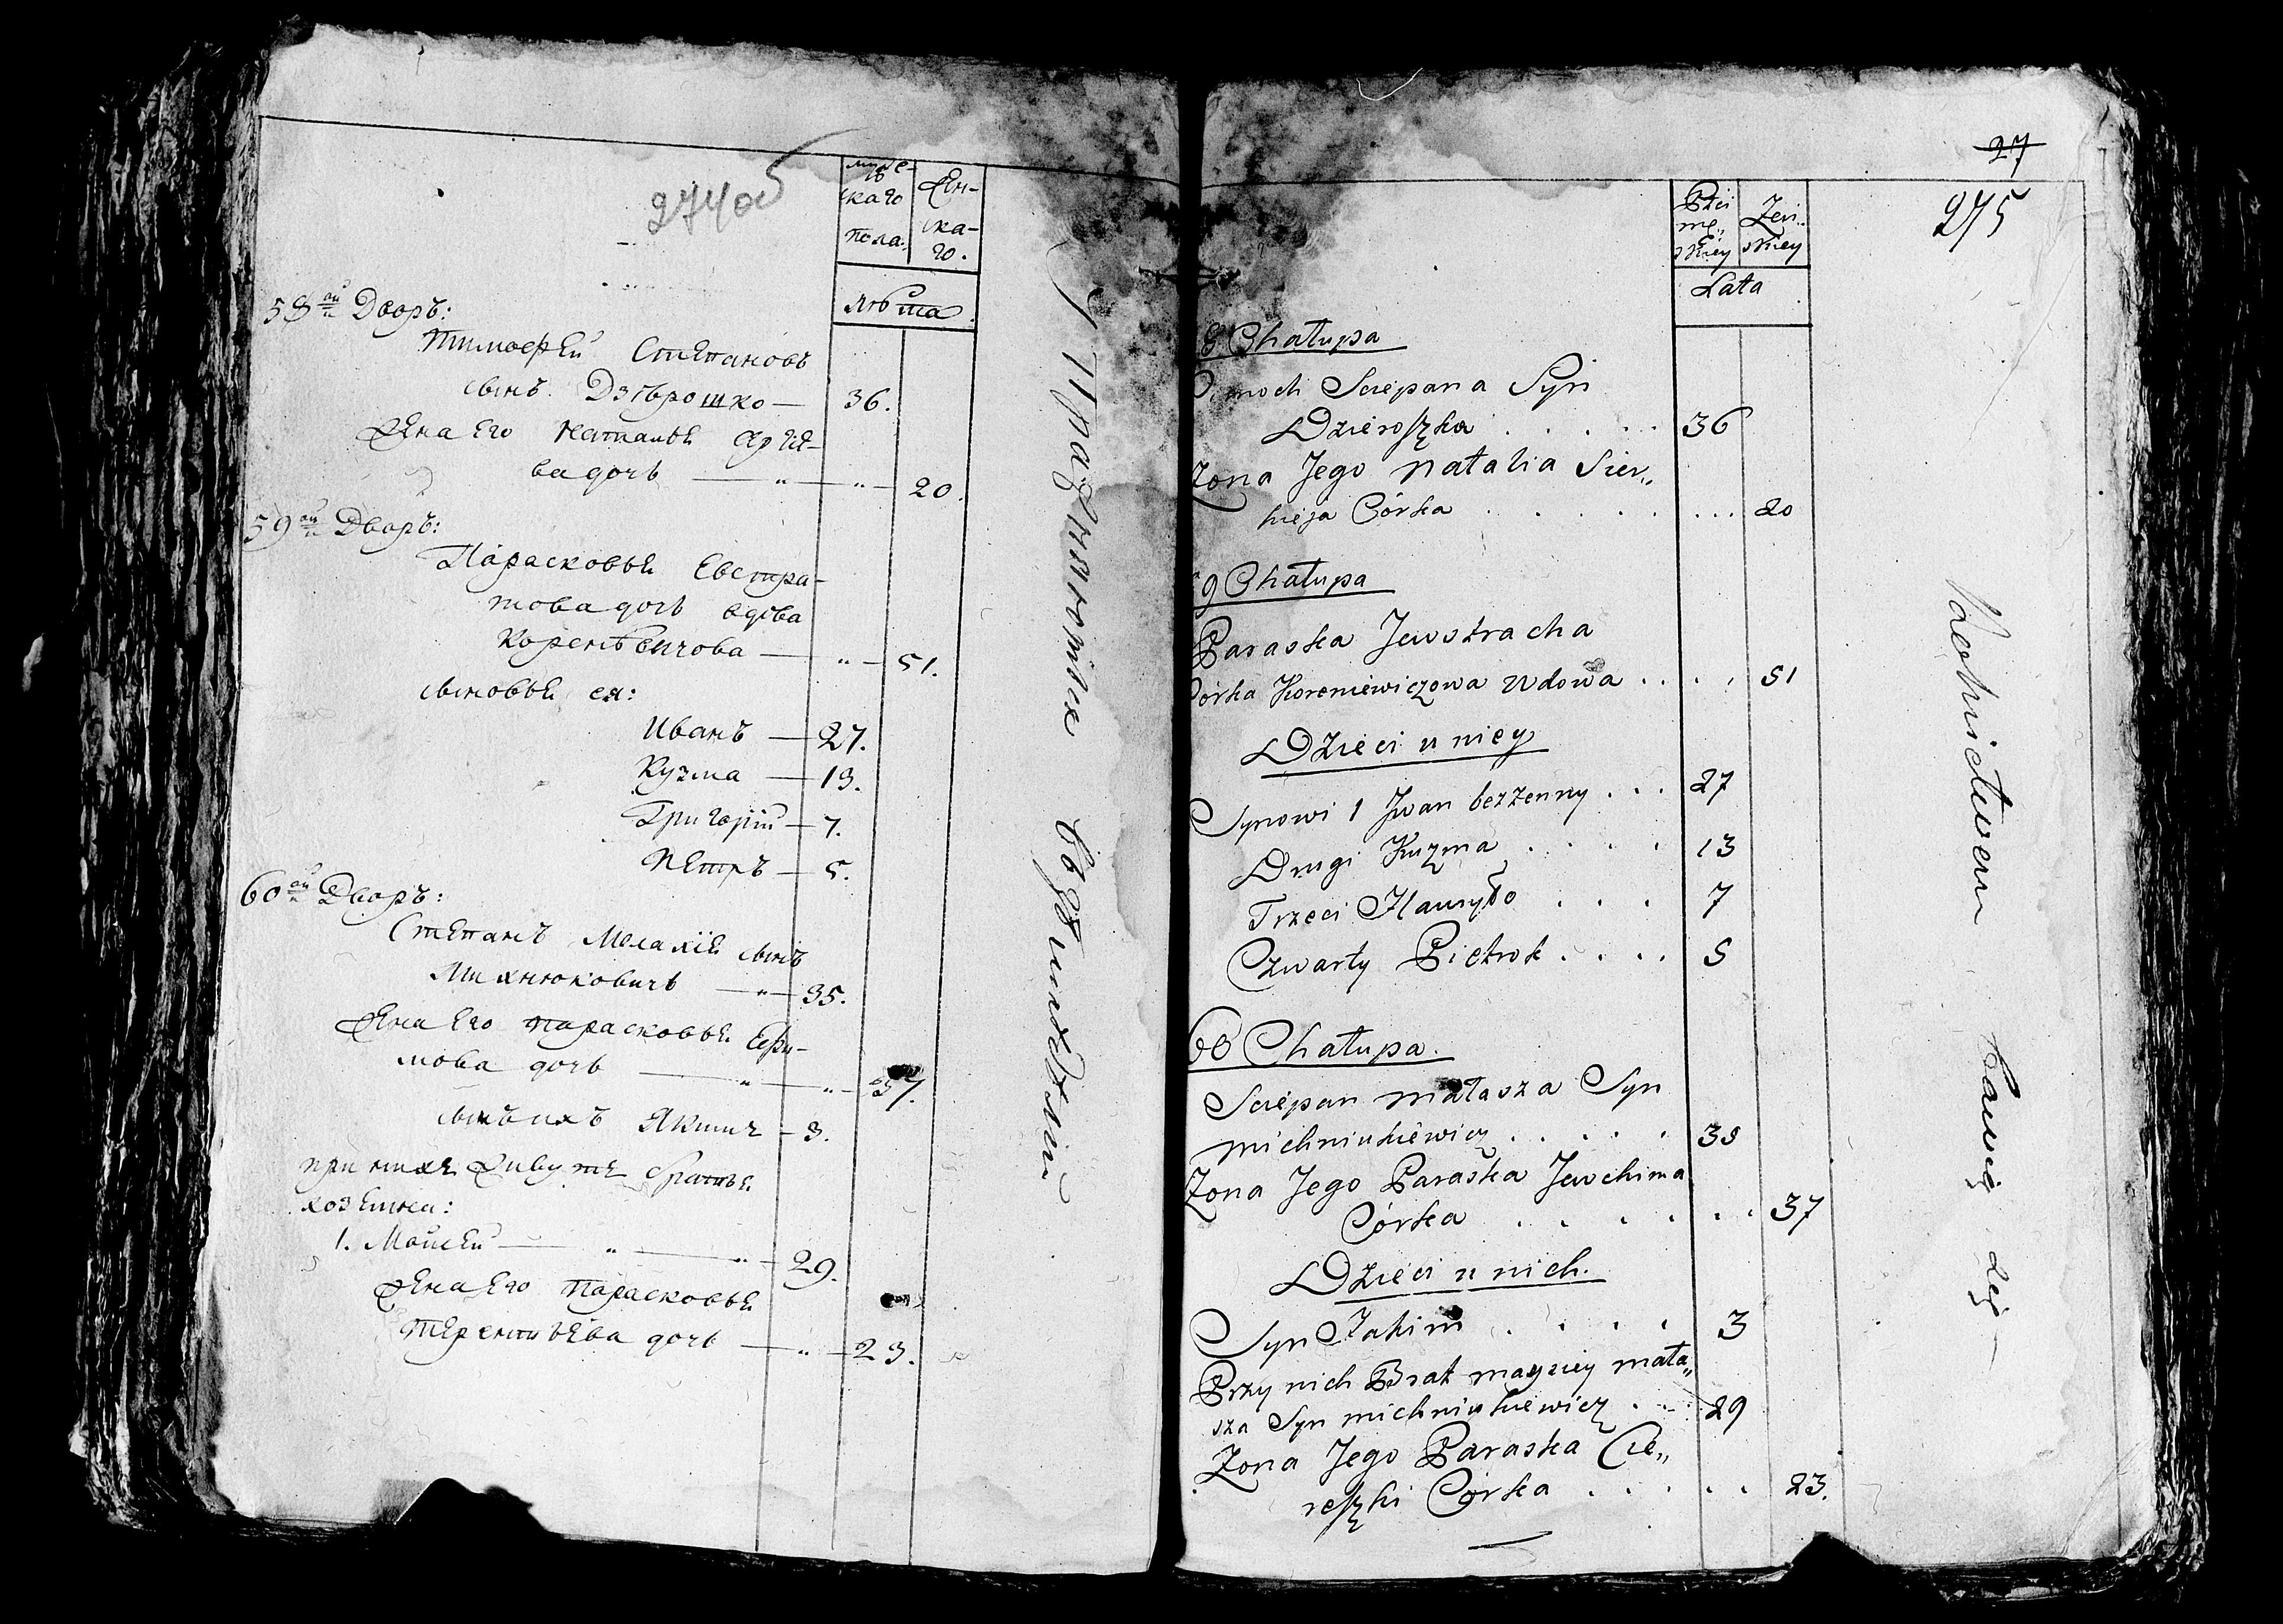 274об
муже-
скаго
пола.
жен-
ска-
го.
лѣта.
58ой Дворъ:
Тимофей Степановъ
сынъ Дзѣрошко — 36.
жена его Наталья Сергѣе-
ва дочь — " — " — 20.
59ой Дворъ:
Парасковья Евстра-
това дочь вдова
Коренѣвичова — " — 51.
сыновья ея:
Иванъ — 27.
Кузма — 13.
Григорій — 7.
Петръ — 5.
60ой Дворъ:
Степанъ Малахіе сынъ
Михнюковичъ — " — 35.
жена его Парасковья Ефи-
мова дочь — " — " — 37.
сынъ ихъ Якимъ — 3.
при нихъ живуте братья
хозяина:
1. Мойсей — " — " — 29.
жена его Парасковья
Терентьева дочь — " — 23.
27
275
Płci
mę„
skiey
Żeń„
skiey
Lata
8 Chałupa
Sciepana Syn
Dzieroszka . . . . . 36
Żona Jego Natalia Sier„
hieja Córka . . . . . . . . 20
9 Chałupa
Paraska Jewstracha
Córka Koreniewiczowa Wdowa . . . . 51
Dzieci u niey
Synowi 1 Jwan bezżenny . . . 27
Drugi Kuzma . . . . 13
Trzeci Hauryło . . . 7
Czwarty Pietrok . . . . 5
60 Chałupa.
Sciepan Małasza Syn
Michniukiewicz . . . . . 35
Żona Jego Paraska Jewchima
Córka . . . . . . . 37
Dzieci u nich.
Syn Jakim . . . . 3
Przy nich Brat Maysiey Mała„
sza Syn Michniukiewicz . . . 29
Żona Jego Paraska Cie„
reszki Córka . . . . . 23.